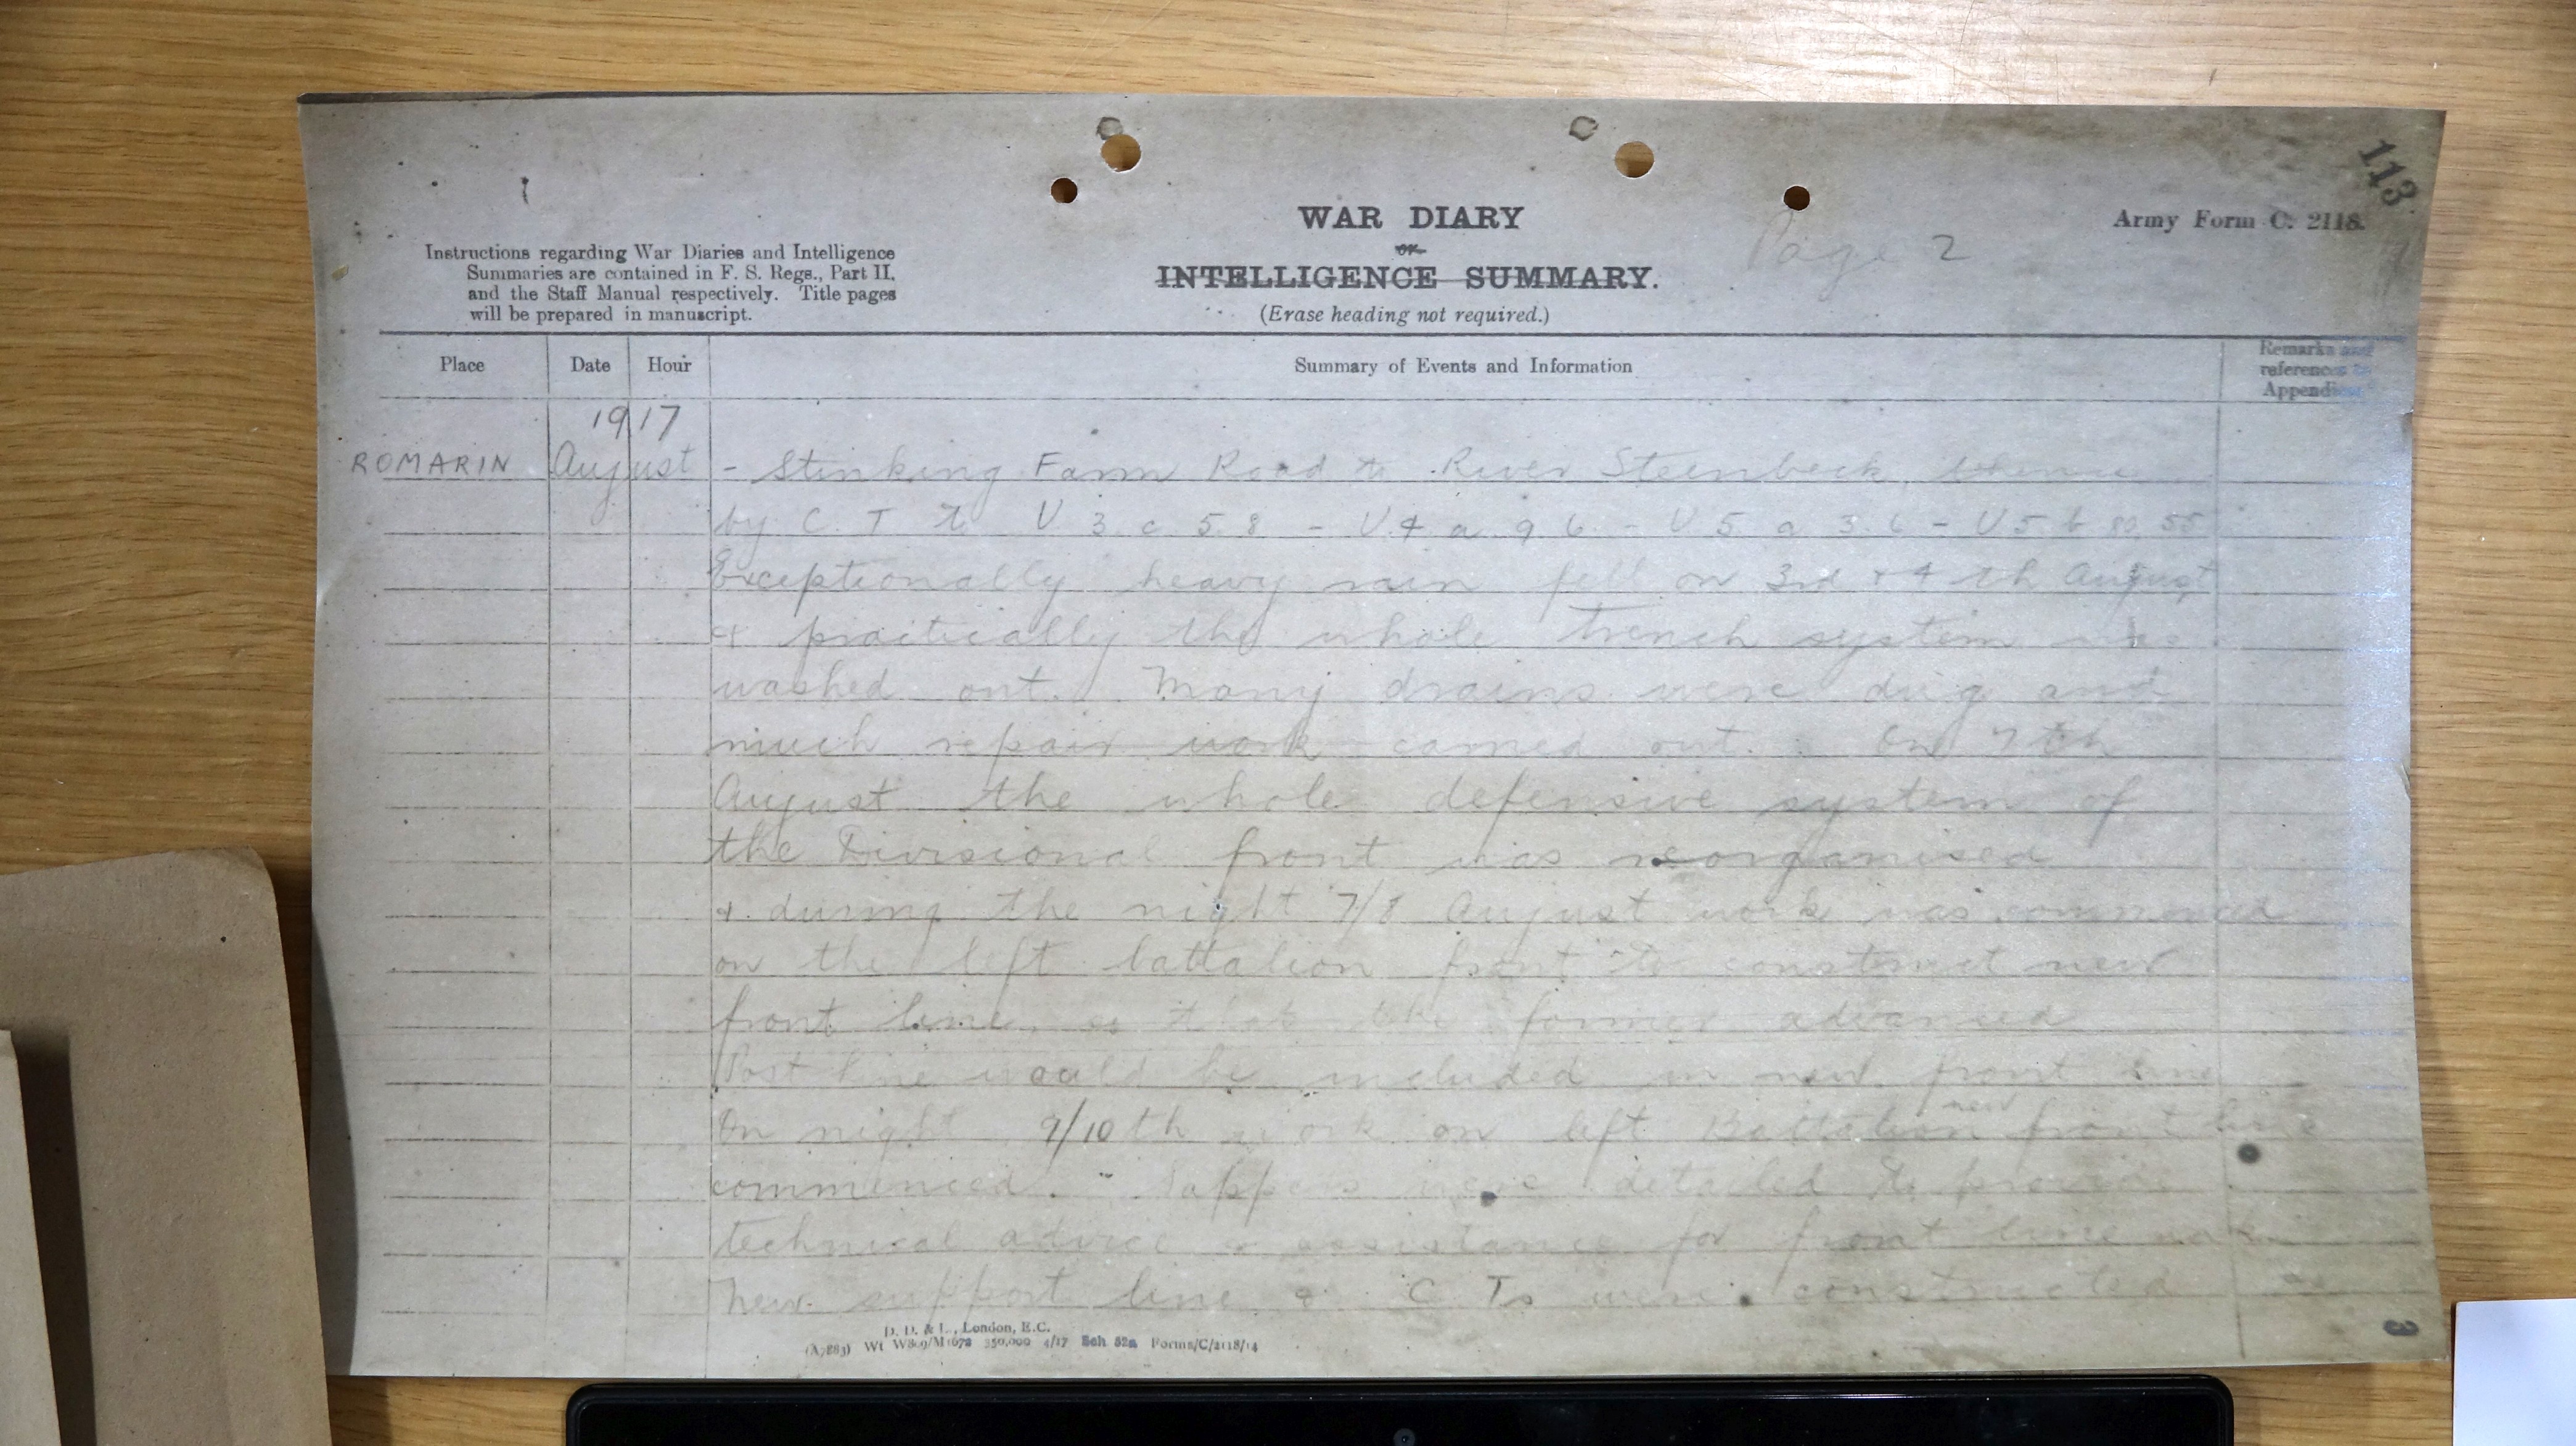 113
WAR DIARY
Army Form C. 2118.
or
Page 2
INTELLIGENCE SUMMARY.
(Erase heading not required.)
Instructions regarding War Diaries and Intelligence
Summaries are contained in F. S. Regs., Part II.
and the Staff Manual respectively. Title pages
will be prepared in manuscript.
Place Date Hour Summary of Events and Information Remarks and
references to
Appendices
1917
ROMARIN August - Stinking Farm Road to River Steenbeek, thence
by C. T to U 3. c. 5. 8 - U. 4 a 9 6 - U 5 a 3. 6 - U 5 b 80. 55
Exceptionally heavy rain fell on 3rd & 4th August
& practically the whole trench system was
washed out. Many drains were dug and
much repair work carried out. On 7th
August the whole defensive system of
the Divisional front was reorganised
& during the night 7/8 August work was commenced
on the left battalion front to construct new
front line, so that the former advanced
Post line would be included in new front line
On night 9/10th work on left Battalion new front line
commenced. Sappers were detailed to provide
technical advice & assistance for front line work
New support line & C Ts were constructed
D. D. & L., London, E.C.
(A7883) Wt W809/M1672 350,000 4/17 Sch 52a Forms/C/2118/14
3